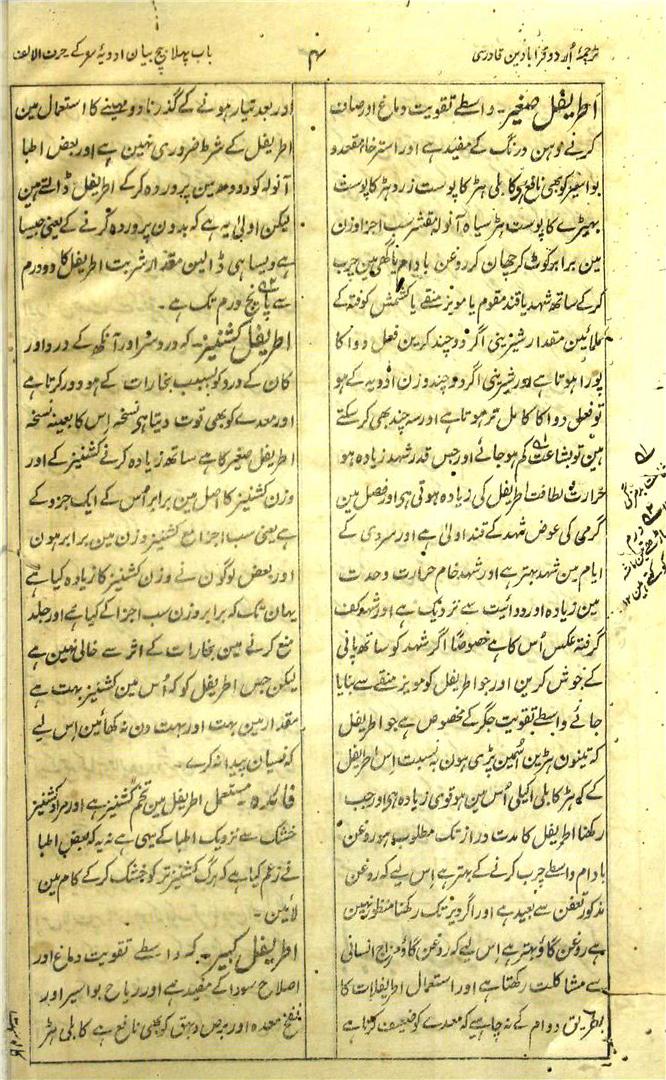 ترجمۂ اردو قرابادین قادری
۴
باب پہلا بیچ بیان ادویۂ سر کے حرف الالف
اطریفل صغیر۔ واسطے تقویت دماغ اور صاف
کرنے ذہن و رنگ کے مفید ہے اور استرخاء مقعد و
بواسیر کو بھی نافع ہی کابلی ہڑ کا پوست زرد ہڑ کا پوست
بہیڑے کا پوست ہڑ سیاہ آنولہ مقشر سب اجزا وزن
مین برابر کوٹ کر چھان کر روغن بادام یا گھی مین چرب
کر کے ساتھ شہد یا قند مقوم یا مویز منقے یا کشمش کوفتہ کے
ملائین مقدار شیرینی اگر دو چند کرین فعل دوا کا
پورا ہوتا ہے اور شیرینی اگر دو چند وزن ادویہ کے ہو
تو فعل دوا کا کامل تر ہوتا ہے اور سہ چند بھی کر سکتے
ہین تو بشاعت کم ہو جائے اور جس قدر شہد زیادہ ہو
حرارت و لطافت اطریفل کی زیادہ ہوتی ہی اور فصل مین
گرمی کی عوض شہد کے قند اولیٰ ہے اور سردی کے
ایام مین شہد بہتر ہے اور شہد خام حرارت و حدت
مین زیادہ اور دوائیت سے نزدیک ہے اور شہد کف
گرفتہ عکس اُس کا ہے خصوصًا اگر شہد کو ساتھ پانی
کے جوش کرین اور جو اطریفل کو مویز منقے سے بنایا
جائے واسطے تقویت جگر کے مخصوص ہے جو اطریفل
کہ تینون ہڑین اسمین پڑی ہون بہ نسبت اس اطریفل
کے کہ ہڑ کابلی اکیلی اُس مین ہو قوی زیادہ ہی اور جب
رکھنا اطریفل کا مدت دراز تک مطلوب ہو روغن
بادام واسطے چرب کرنے کے بہتر ہے اِس لیے کہ روغن
مذکور تعفن سے بعید ہے اور اگر دیر تک رکھنا منظور نہین
ہے روغن گاؤ بہتر ہے اِس لیے کہ روغن گاؤ مزاج انسانی
سے مشاکلت رکھتا ہے اور استعمال اطریفلات کا
بطریق دوام کے نہ چاہیے کہ معدے کو ضعیف کرتا ہے
اور بعد تیار ہونے کے گذرنا دو مہینے کا استعمال مین
اطریفل کے شرط ضروری نہین ہے اور بعض اطبا
آنولہ کو دودھ مین پروردہ کر کے اطریفل ڈالتے ہین
لیکن اولیٰ یہ ہے کہ بدون پروردہ کرنے کے یعنی جیسا
ہے ویسا ہی ڈالین مقدار شربت اطریفل کا دو درم
سے پانچ درم تک ہے۔
اطریفل کشنیز۔ کہ درد سر اور آنکھ کے درد اور
کان کے درد کو بسبب بخارات کے ہو دور کرتا ہے
اور معدے کو بھی قوت دیتا ہی نسخہ اِس کا بعینہ نسخہ
اطریفل صغیر کا ہے ساتھ زیادہ کرنے کشنیز کے اور
وزن کشنیز کا اصل مین برابر اُس کے ایک جزو کے
ہے یعنی سب اجزا مع کشنیز وزن مین برابر ہون
اور بعض لوگون نے وزن کشنیز کا زیادہ کیا ہے
یہان تک کہ برابر وزن سب اجزا کے کیا ہے اور جلد
منع کرنے مین بخارات کے اثر سے خالی نہین ہے
لیکن جس اطریفل کو کہ اُس مین کشنیز بہت ہے
مقدار مین بہت اور بہت دن نہ کھائین اِس لیے
کہ نسیان پیدا نہ کرے۔
فائدہ مستعمل اطریفل مین تخم کشنیز ہے اور مراد کشنیز
خشک سے نزدیک اطبا کے یہی ہے نہ یہ کہ بعض اطبا
نے زعم کیا ہے کہ برگ کشنیز تر کو خشک کر کے کام مین
لائین۔
اطریفل کبیر۔ کہ واسطے تقویت دماغ اور
اصلاح سودا کے مفید ہے اور ریاح بواسیر اور
نفخ معدہ اور برص و بہق کو بھی نافع ہے کابلی ہڑ